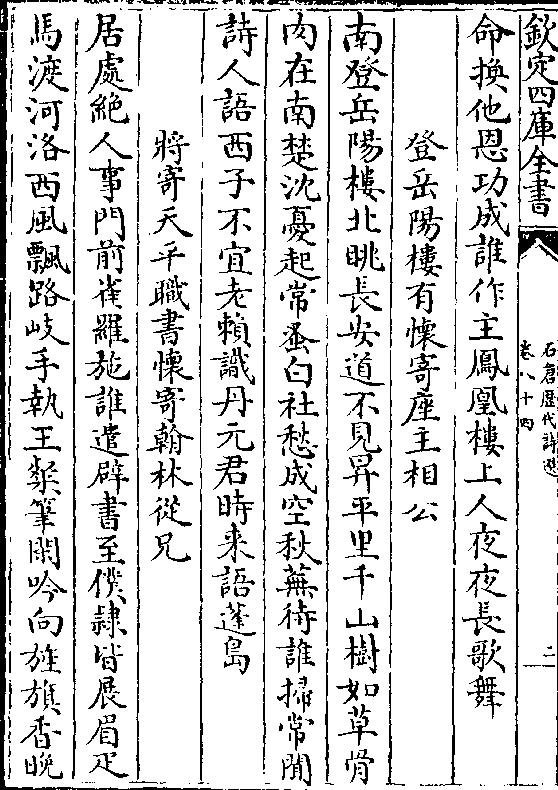 欽定四庫全書
石倉歷代詩選
卷八十四
二
命換他恩功成誰作主鳳凰樓上人夜夜長歌舞
登岳陽樓有懷寄座主相公
南登岳陽樓北眺長安道不見昇平里千山樹如草骨
肉在南楚沈憂起常蚤白社愁成空秋蕪待誰掃常聞
詩人語西子不宜老賴識丹元君時來語蓬島
將寄天平職書懷寄翰林從兄
居處絶人事門前雀羅施誰遣辟書至僕隸皆展眉疋
馬渡河洛西風飄路岐手執王粲筆閑吟向旌旗香晚